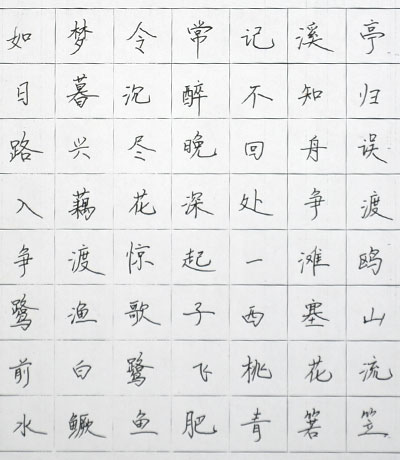 如梦令常记溪亭
日暮沉醉不知归
路兴尽晚回舟误
入藕花深处争渡
争渡惊起一滩鸥
鹭渔歌子西塞山
前白鹭飞桃花流
水鳜鱼肥青箬笠